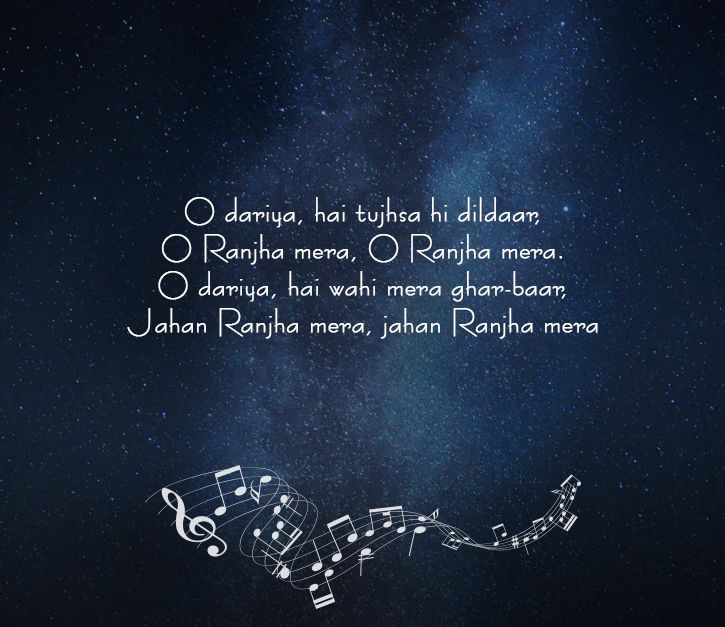 O dariya, hai tujhsa hi dildaar,
O Ranjha mera, O Ranjha mera.
O dariya, hai wahi mera ghar-baar,
Jahan Ranjha mera, jahan Ranjha mera